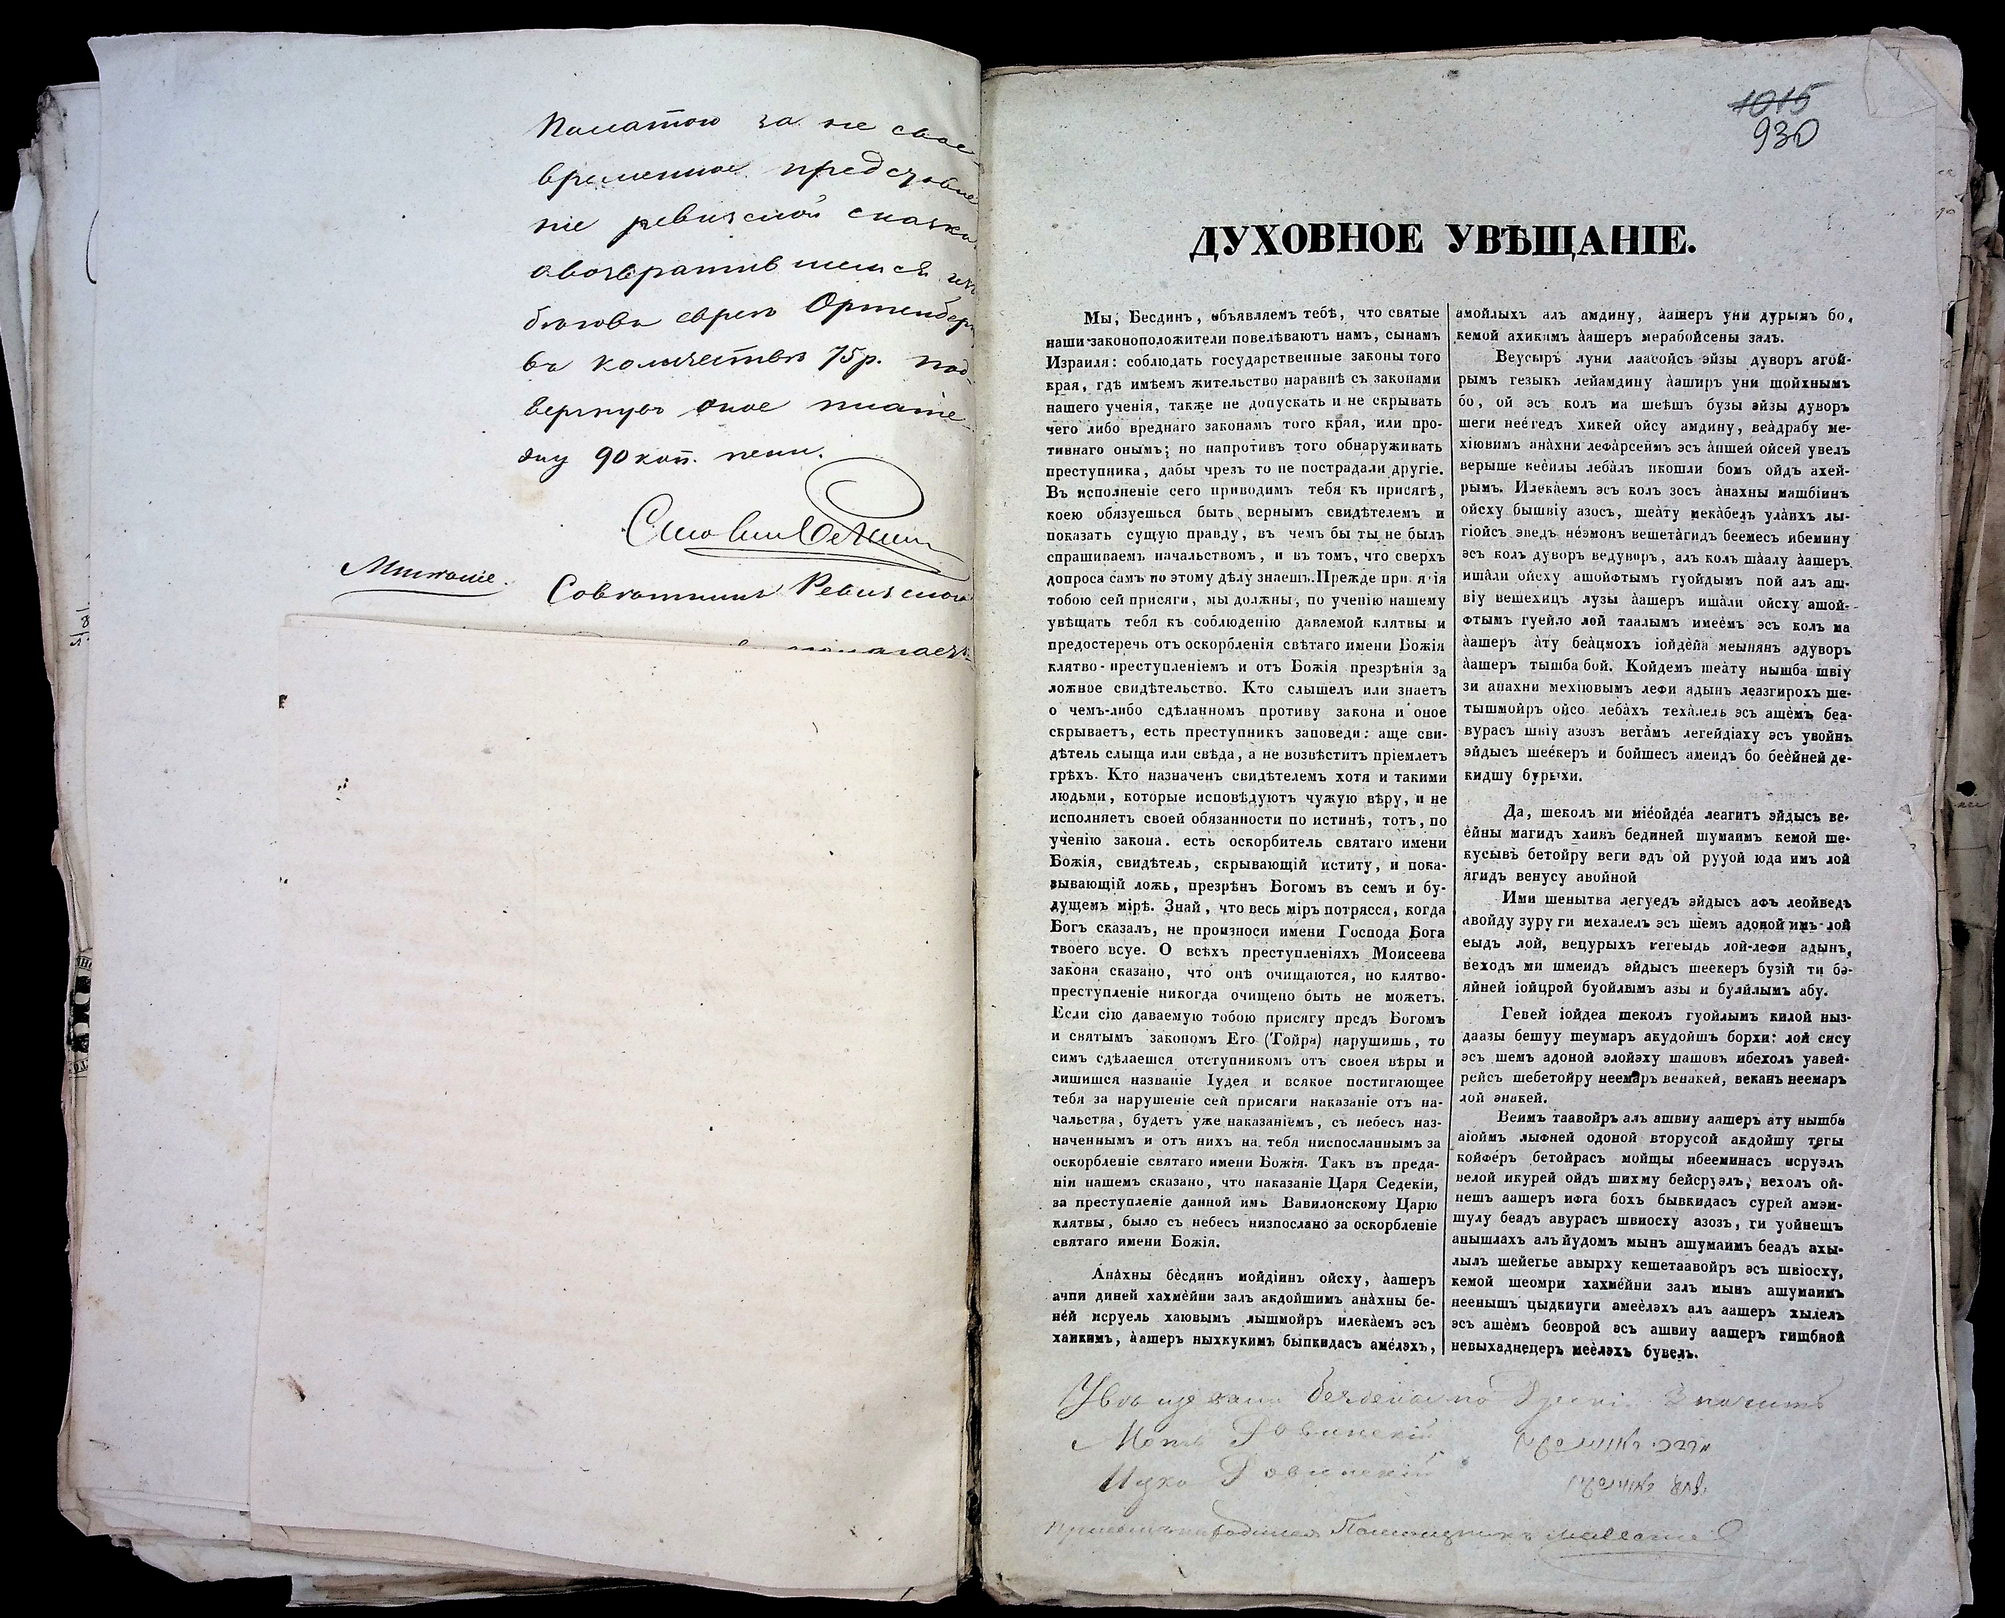 Палатою за не свое-
временное представле
ніе ревизской сказки
овозвратившемся изъ
бѣговъ евреѣ Ортенбер
въ количествѣ 75 р. под-
вергнувъ оное платe-
жу 90 коп. пени.
Мнѣніе.
Совѣтникъ Ревизскаго
полагаетъ
1015
930
ДУХОВНОЕ УВѢЩАНІЕ.
Мы, Бесдинъ, объявляемъ тебѣ, что святые
наши законоположители повелѣваютъ намъ, сынамъ
Израиля: соблюдать государственные законы того
края, гдѣ имѣемъ жительство наравнѣ съ законами
нашего ученія, также не допускать и не скрывать
чего либо вреднаго законамъ того края, или про-
тивнаго онымъ; но напротивъ того обнаруживать
преступника, дабы чрезъ то не пострадали другіе.
Въ исполненіе сего приводимъ тебя къ присягѣ,
коею обязуешься быть вернымъ свидѣтелемъ и
показать сущую правду, въ чемъ бы ты не былъ
спрашиваемъ начальствомъ, и въ томъ, что сверхъ
допроса самъ по этому дѣлу знаешь. Прежде при я ія
тобою сей присяги, мы должны, по ученію нашему
увѣщать тебя къ соблюденію даваемой клятвы и
предостеречь отъ оскорбленія свѣтаго имени Божія
клятво-преступленіемъ и отъ Божія презрѣнія за
ложное свидѣтельство. Кто слышелъ или знаетъ
о чемъ-либо сдѣланномъ противу закона и оное
скрываетъ, есть преступникъ заповеди: аще сви-
дѣтель слыща или свѣда, а не возвѣститъ пріемлетъ
грѣхъ. Кто назначенъ свидѣтелемъ хотя и такими
людьми, которые исповѣдуютъ чужую вѣру, и не
исполняетъ своей обязанности по истинѣ, тотъ, по
ученію закона. есть оскорбитель святаго имени
Божія, свидѣтель, скрывающій иститу, и пока-
зывающій ложь, презрѣнъ Богомъ въ семъ и бу-
дущемъ мірѣ. Знай, что весь міръ потрясся, когда
Богъ сказалъ, не произноси имени Господа Бога
твоего всуе. О всѣхъ преступленіяхъ Моисеева
закона сказано, что онѣ очищаются, но клятво-
преступленіе никогда очищено быть не можетъ.
Если сію даваемую тобою присягу предъ Богомъ
и святымъ закономъ Его (Тойра) нарушишь, то
симъ сдѣлаешся отступникомъ отъ своея вѣры и
лишишся названіе Іудея и всякое постигающее
тебя за нарушеніе сей присяги наказаніе отъ на-
чальства, будетъ уже наказаніемъ, съ небесъ наз-
наченнымъ и отъ нихъ на тебя ниспосланнымъ за
оскорбленіе святаго имени Божія. Такъ въ преда-
ніи нашемъ сказано, что наказаніе Царя Седекіи,
за преступленіе данной имъ Вавилонскому Царю
клятвы, было съ небесъ низпослано за оскорбленіе
святаго имени Божія.
Ана́хны бѐсдинъ мойдіинъ ойсху, а́ашеръ
ачпи диней хахмѐйни залъ акдойшимъ ана̀хны бе-
не́й исруель хаювымъ лышмойръ илека̀емъ эсъ
ханкимъ, а́ашеръ ныхкукимъ быпкидасъ аме́лэхъ,
амойлыхъ алъ амдину, а́ашеръ уни дурымъ бо,
кемой ахикимъ а́ашеръ мерабойсены залъ.
Веусыръ луни лаасойсъ эйзы дуворъ агой-
рымъ гезыкъ лейамдину а̀аширъ уни шойхнымъ
бо, ой эсъ колъ ма шеѣшъ бузы эйзы дуворъ
шеги нее́гедъ хикей ойсу амдину, веа́драбу ме-
хіювимъ ана́хни лефа́рсеймъ эсъ а́пшей ойсей увелъ
верыше кее́илы леба́лъ икошли бомъ ойдъ ахей-
рымъ. Илека̀емъ эсъ колъ зосъ а́нахны машбіинъ
ойсху бышвіу азосъ, шеа̀ту мека̀белъ ула́ихъ лы-
гіойсъ эведъ не́эмонъ вешета́гидъ беемесъ ибемину
эсъ колъ дуворъ ведуворъ, алъ колъ ша́алу а́ашеръ
иша́ли ойсху ашойфтымъ гуойдымъ пой алъ аш-
віу вешехицъ лузы а́ашеръ иша́ли ойсху ашой-
фтымъ гуейло лой таалымъ имее́мъ эсъ колъ ма
а́ашеръ а́ту беа̀цмохъ іойде́йа меынянъ эдуворъ
а́ашеръ тышба бой. Койдемъ шеа̀ту нышба швіу
зи анахни мехіювымъ лефи адынъ леазгирохъ ше-
тышмойръ ойсо леба̀хъ теха̀лель эсъ аще́мъ беа-
вурасъ швіу азозъ вега́мъ легейдіаху эсъ увойнъ
эйдысъ шее́керъ и бойшесъ амеидъ бо беѐйней де-
кидшу бурыхи.
Да, шеколъ ми міе́ойде́а леагитъ эйдысъ ве-
е́йны магидъ хаивъ бединей шумаимъ кемой ше-
кусывъ бетойру веги эдъ ой рууой юда имъ лой
ягидъ венусу авойной
Ими шенытва легуедъ эйдысъ афъ леойведъ
авойду зуру ги мехалелъ эсъ шіемъ адоной имъ-лой
еыдъ лой, вецурыхъ кегеыдь лой-лефи адынъ,
веходъ ми шмеидъ эйдысъ шеекеръ бузій ти бэ-
яйней іойцрой буойлымъ азы и буяйлымъ абу.
Гевей іойдеа шеколъ гуойлымъ килой ныз-
даазы бешуу шеумаръ акудойшъ борхи: лой сису
эсъ шемъ адоной элойэху шашовъ ибехолъ уавей-
рейсъ шебетойру неемаръ венакей, веканъ неемаръ
лой энакей.
Веимъ таавойръ алъ ашвиу аашеръ ату нышба
аіоймъ лыфней одоной вторусой акдойшу тегы
койфе́ръ бетойрасъ мойщы ибееминасъ исруэлъ
велой икурей ойдъ шихму бейсруэлъ, вехолъ ой-
нешъ аашеръ ифга бохъ бывкидасъ сурей амэм-
шулу беадъ авурасъ швиосху азозъ, ги уойнещъ
анышлахъ алъ йудомъ мынъ ашумаимъ беадъ ахы-
лылъ шейегье авырху кешетаавойръ эсъ швіосху,
кемой шеомри хахме́йни залъ мынъ ашумаимъ
неенышъ цыдкиуги амеѐлэхъ алъ аашеръ хылелъ
эсъ ашѐмъ беоврой эсъ ашвиу аашеръ гишбиой
невыхаднецеръ меѐлэхъ бувелъ.
Мотъ Ровинскій
Ицко Ровинскій